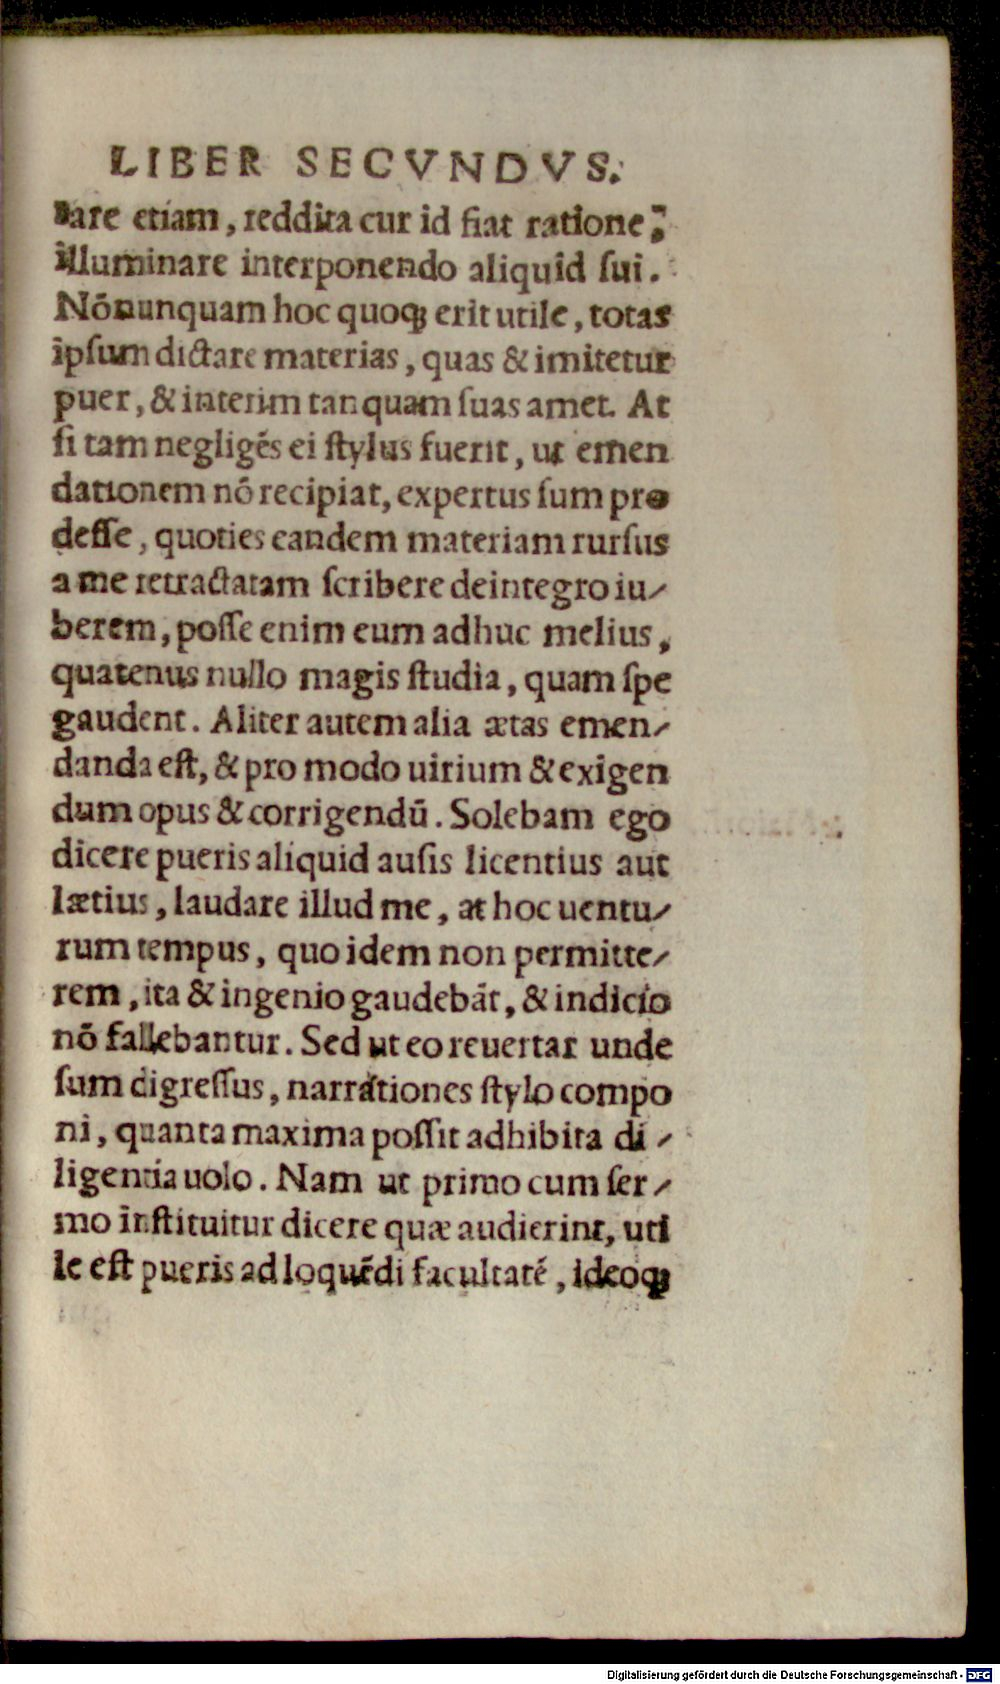 LIBER SECVNDVS.
tare etiam, reddita cur id fiat ratione,
illuminare interponendo aliquid sui.
Nōnunquam hoc quoqꝫ erit utile, totas
ipsum dictare materias, quas & imitetur
puer, & interim tanquam suas amet. At
si tam negligẽs ei stylus fuerit, ut emen
dationem nō recipiat, expertus sum pro
desse, quoties eandem materiam rursus
a me retractatam scribere deintegro iu⸗
berem, posse enim eum adhuc melius,
quatenus nullo magis studia, quam spe
gaudent. Aliter autem alia ætas emen⸗
danda est, & pro modo uirium & exigen
dum opus & corrigendū. Solebam ego
dicere pueris aliquid ausis licentius aut
lætius, laudare illud me, at hoc uentu⸗
rum tempus, quo idem non permitte⸗
rem, ita & ingenio gaudebãt, & indicio
nō fallebantur. Sed ut eo reuertar unde
sum digressus, narrationes stylo compo
ni, quanta maxima possit adhibita di⸗
ligentia uolo. Nam ut primo cum ser⸗
mo instituitur dicere quæ audierint, uti
le est pueris ad loquẽdi facultatẽ, ideoqꝫ
Digitalisierung gefördert durch die Deutsche Forschungsgemeinschaft - DFG